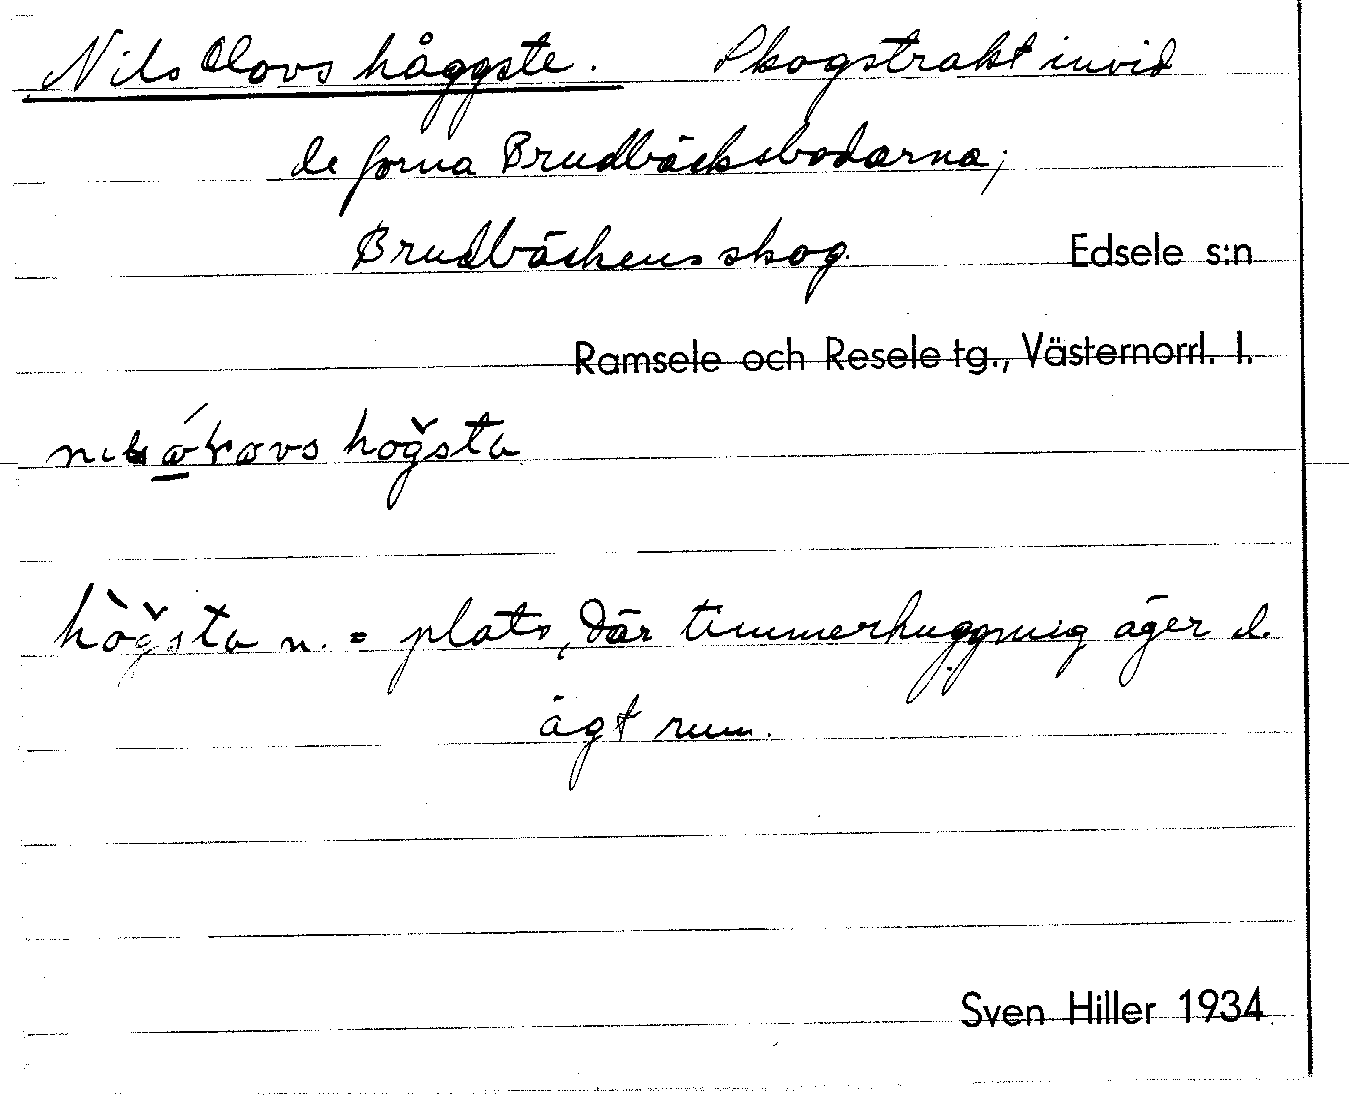 Nils Olovs håggste. Skogstrakt invid
de forna Brudbäcksbodarna;
Brudbäckens skog. Edsele s:n
Ramsele och Resele tg., Västernorrl. l.
hogsta
hògsta n. = plats, där timmerhuggning äger el.
ägt rum.
Sven Hiller 1934